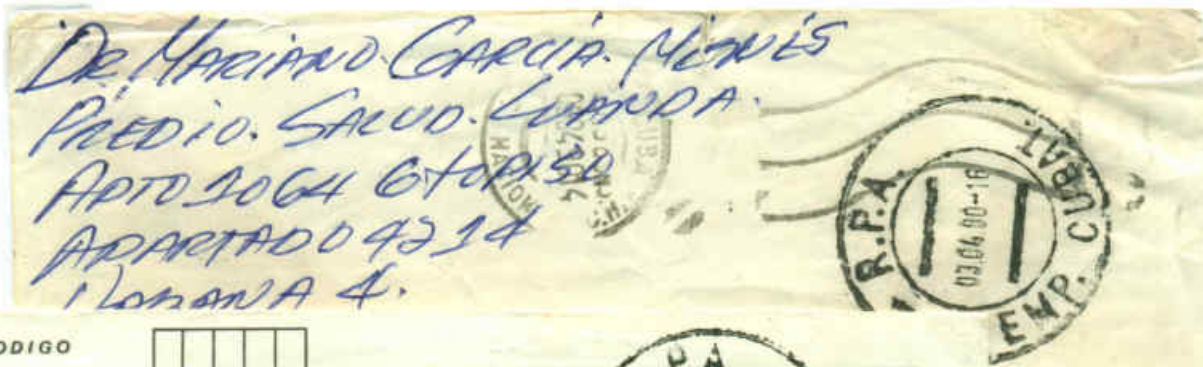 DR. MARIANO. GARCIA.
PREDIO. SALUD. LUANDA.
APTO 1064 6to PISO
APARTADO 4214
HABANA 4.
R.P.A.
03.04.80-16
EMP. CUBAT
ODIGO